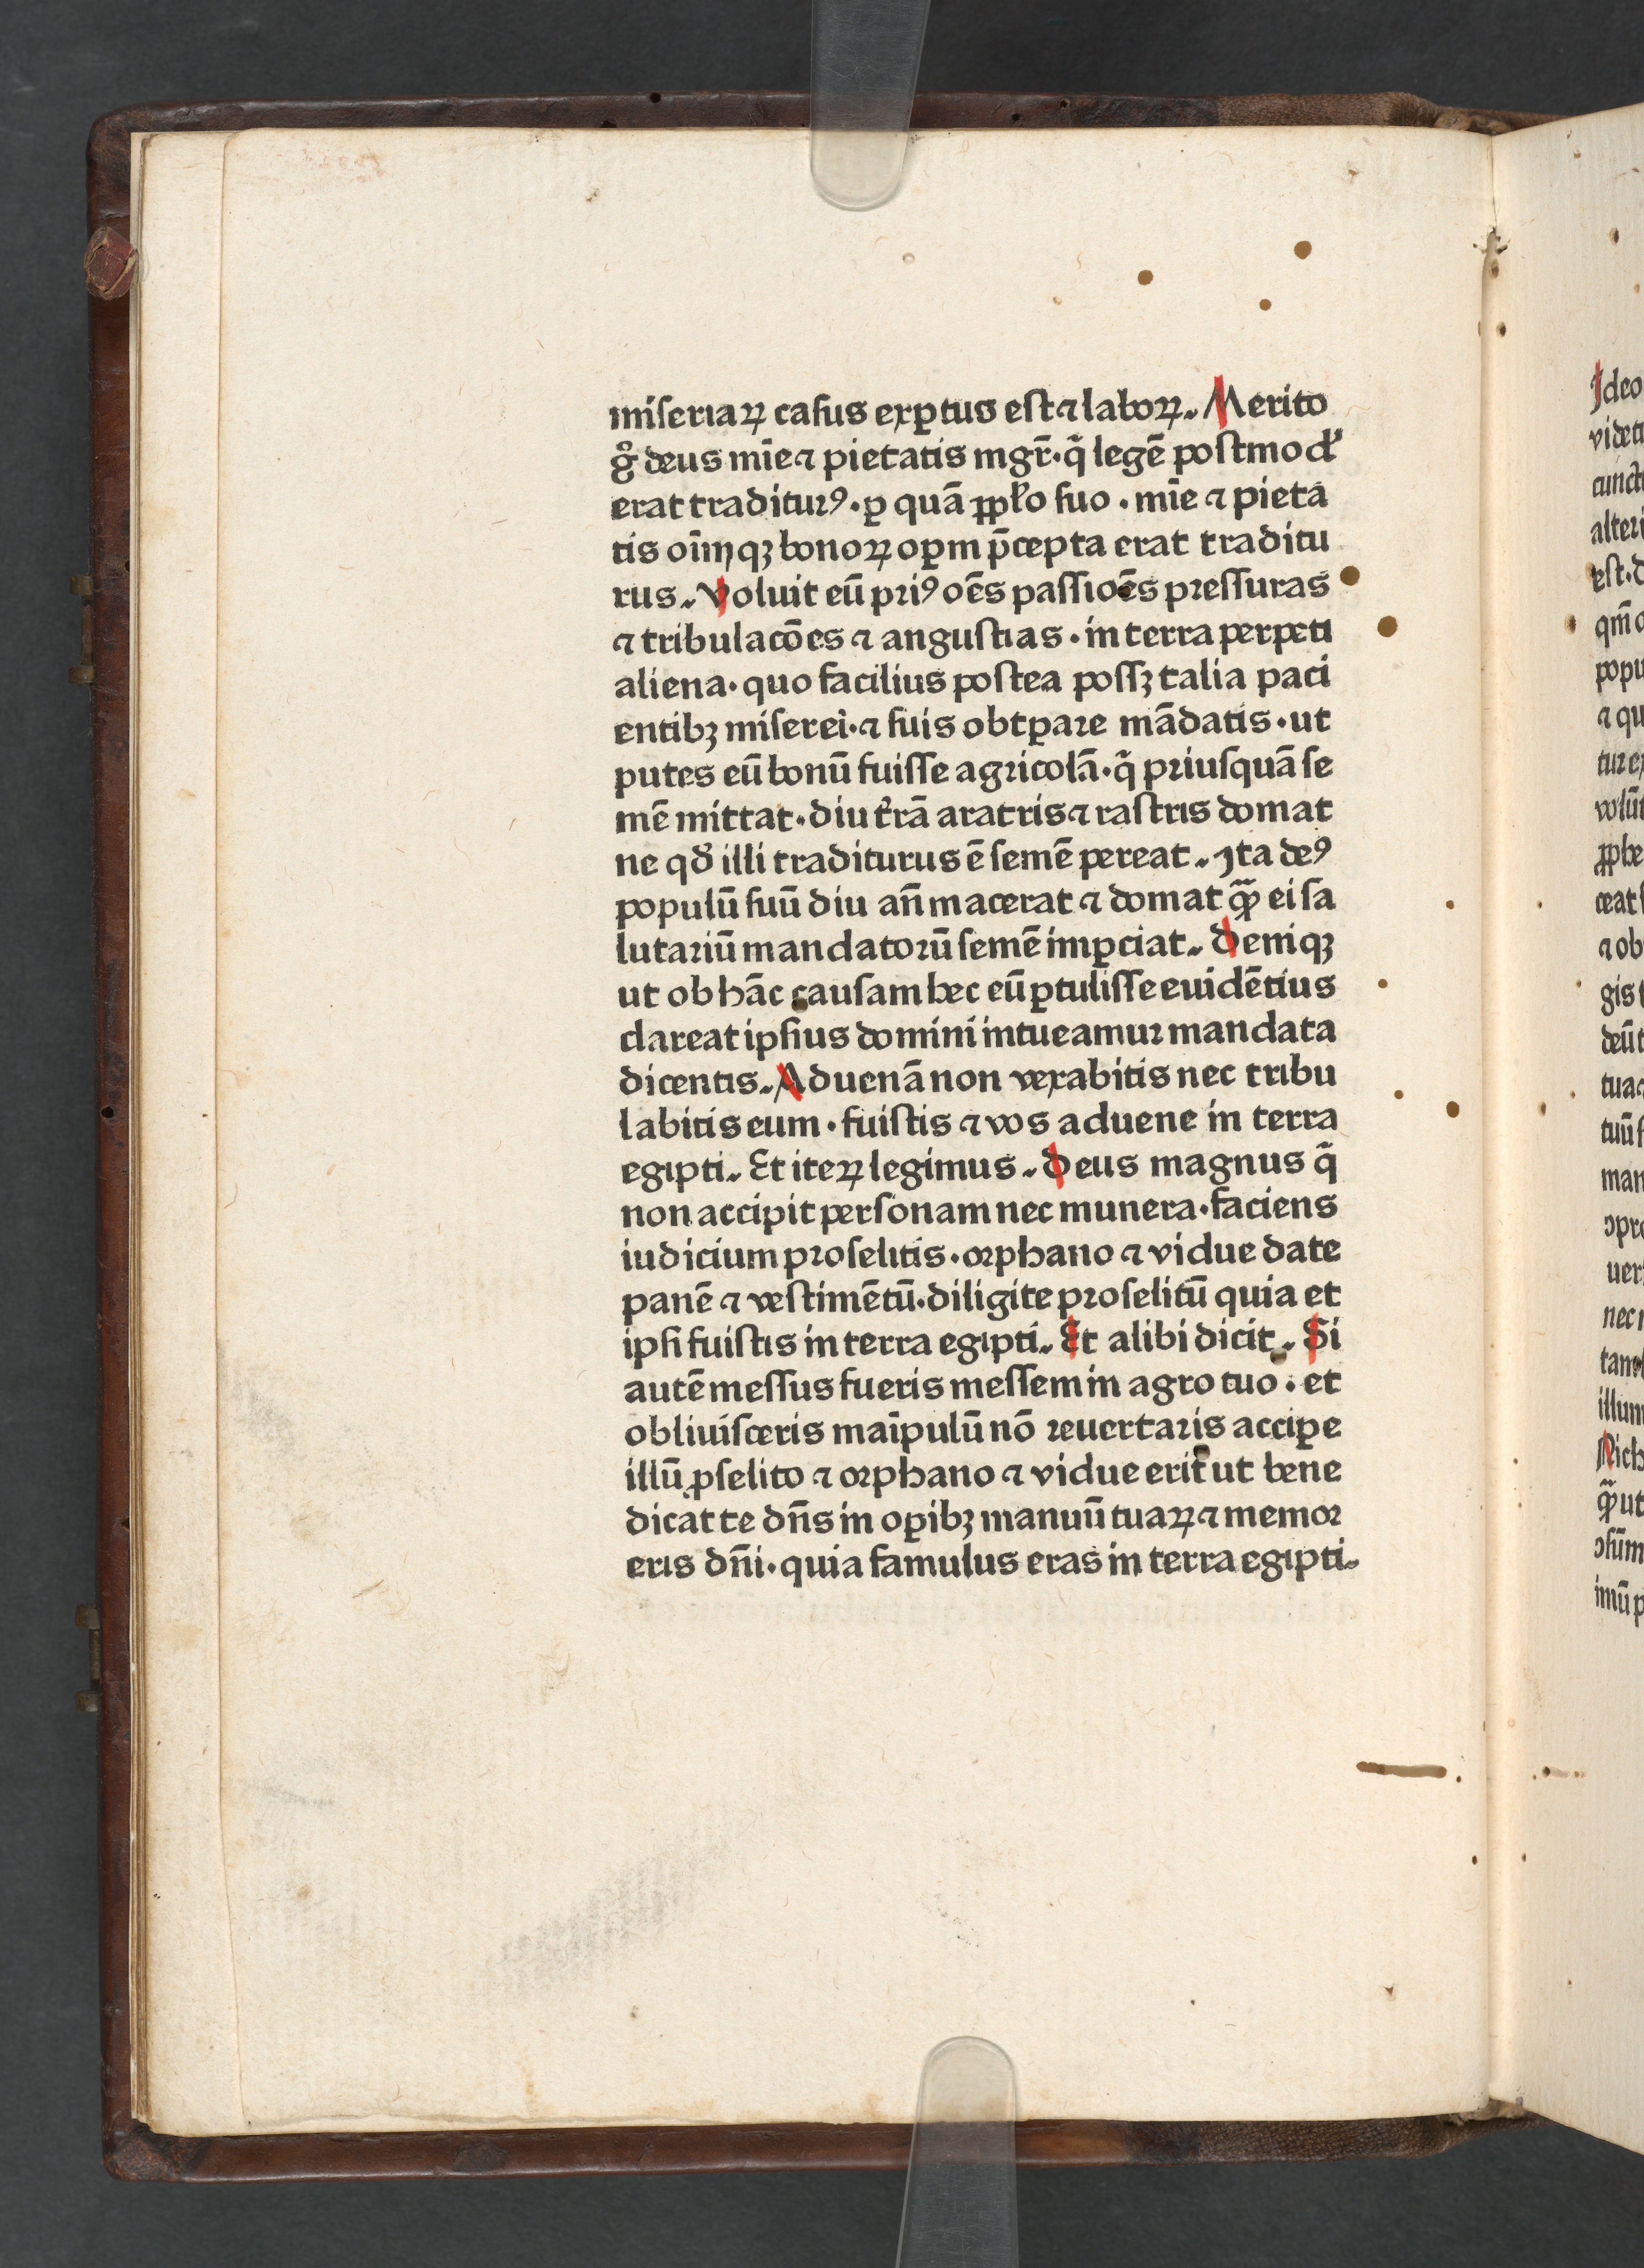 miſeriaꝝ caſus exꝑtus eſt ⁊ laboꝝ. Merito
gͦ deus mīe ⁊ pietatis mgr̄. q̄ legē poſtmodū
erat traditurꝰ. ꝑ quā ꝓpło ſuo. mīe ⁊ pieta
tis oīmqꝫ bonoꝝ oꝑm p̄cepta erat traditu
rus. Voluit eū priꝰ oēs paſſioēs preſſuras
⁊ tribulacōes ⁊ anguſtias. in terra perpeti
aliena. quo facilius poſtea poſſꝫ talia paci
entibꝫ miſerei. ⁊ ſuis obtꝑare mādatis. ut
putes eū bonū fuiſſe agricolā. q̄ priuſquā ſe
mē mittat. diu t̄rā aratris ⁊ raſtris domat
ne qd̄ illi traditurus ē ſemē pereat. Ita deꝰ
populū ſuū diu an̄ macerat ⁊ domat qͣꝫ ei ſa
lutariū mandatorū ſemē imꝑciat. Deniqꝫ
ut ob hāc cauſam hec eū ꝑtuliſſe euidētius
clareat ipſius domini intueamur mandata
dicentis. Aduenā non vexabitis nec tribu
labitis eum. fuiſtis ⁊ vos aduene in terra
egipti. Et iteꝝ legimus. Deus magnus q̄
non accipit perſonam nec munera. faciens
iudicium proſelitis. orphano ⁊ vidue date
panē ⁊ veſtimētū. diligite proſelitū quia et
ipſi fuiſtis in terra egipti. Et alibi dicit. Si
autē meſſus fueris meſſem in agro tuo. et
obliuiſceris maīpulū nō reuertaris acciꝑe
illū ꝓſelito ⁊ orphano ⁊ vidue erit̄ ut bene
dicat te dn̄s in oꝑibꝫ manuū tuaꝝ ⁊ memor
eris dn̄i. quia famulus eras in terra egipti.